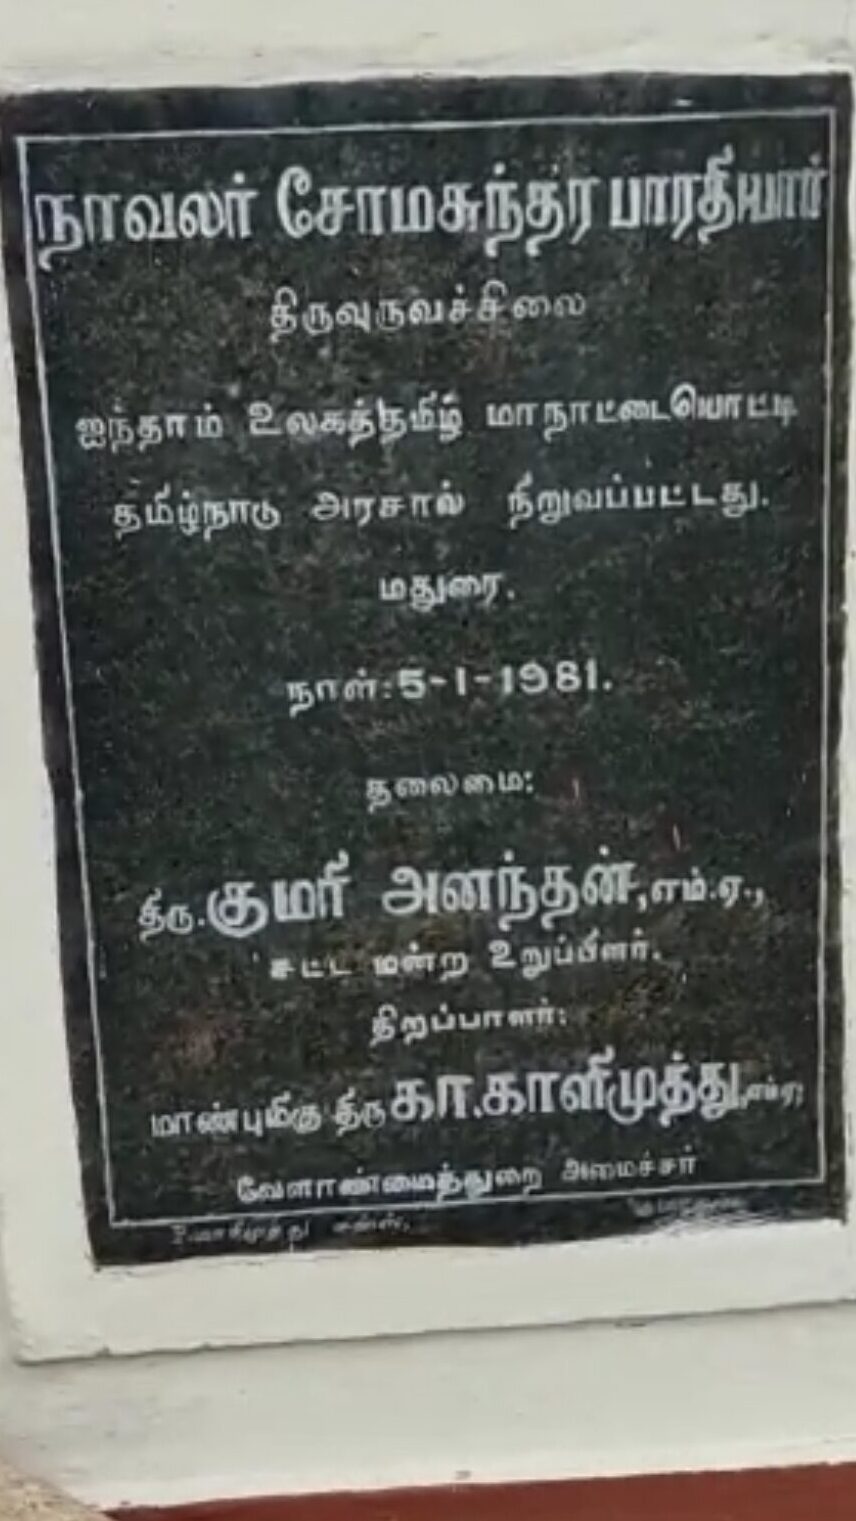 நாவலர் சோமசுந்தர பாரதியார்
திருவுருவச்சிலை
ஐந்தாம் உலகத்தமிழ் மாநாட்டையொட்டி
தமிழ்நாடு அரசால் நிறுவப்பட்டது.
மதுரை.
நாள்: 5-1-1981.
தலைமை:
திரு. குமரி அனந்தன், எம்.ஏ.,
சட்ட மன்ற உறுப்பினர்.
திறப்பாளர்:
மாண்புமிகு திரு கா.காளிமுத்து, எம்.ஏ;
வேளாண்மைத்துறை அமைச்சர்